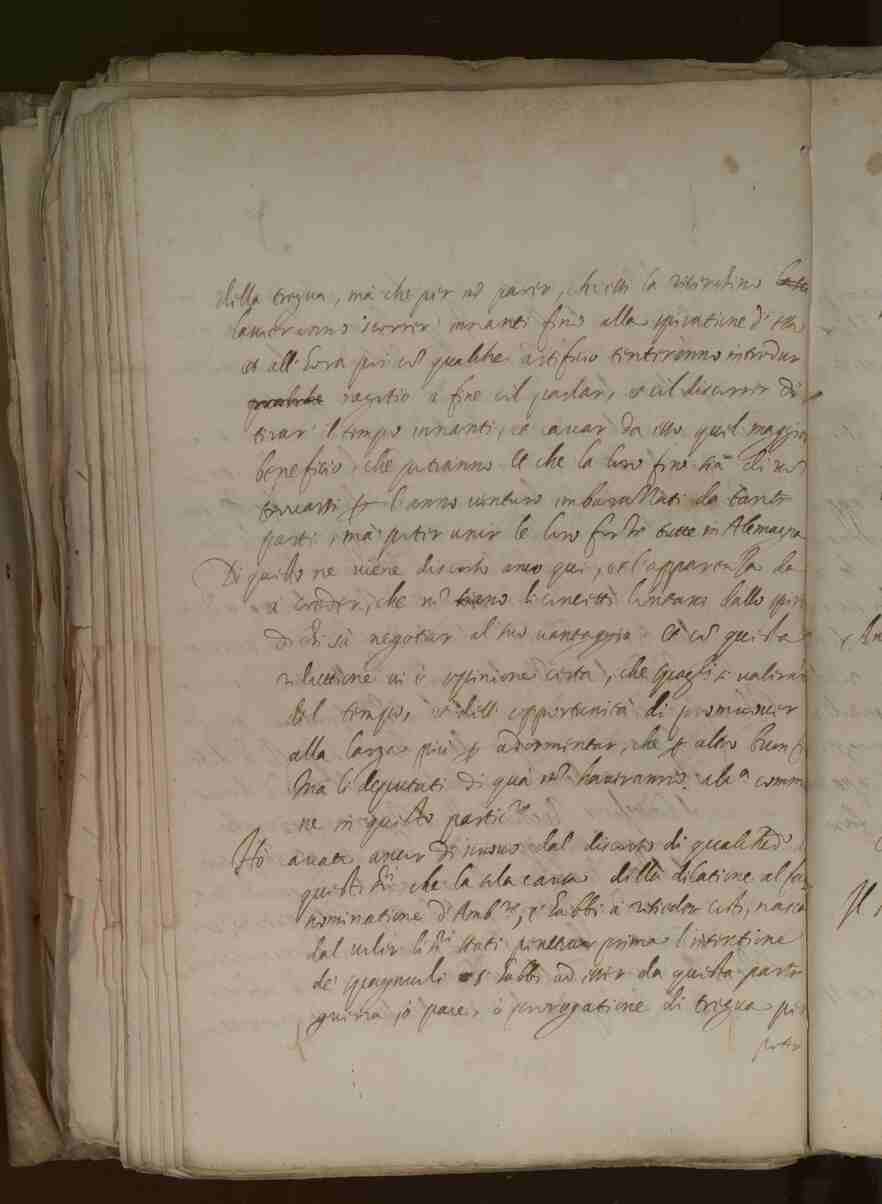 della tregua, mà che per nõ parer, che essi la ricerchino
lasceranno scorrer inanti fino alla spiratione d' essa
et all' hora poi cõ qualche artificio tenteranno introdur
qualche negotio à fine col parlar, et col discorrer di
tirar il tempo inanti, et cavar da esso quel maggior
beneficio, che potranno et che la loro fine sia di nõ
trovarsi l'anno venturo imbarazzati da tante
parti, mà poter unir le loro forze tutte in Alemagna
Di questo ne viene discorso anco qui, et l'apparenza da
à creder, che nõ siano li concetti lontani dallo
di chi sà negotiar al suo vantaggio. Et cõ questa
relatione vi è opinione certa, che Spagnoli si valeranno
del tempo, et dell' opportunità di
alla larga più p adormentar, che p altro buon
Mà li deputati di quà nõ haveranno alcª
ne in questo partic.re
Hò cavato ancor di nuovo dal discorso di qualched'
questi SSri che la sola causa della dilatione al far
nominatione d'Amb.re, ch' habbi à risieder costì, nasca
dal voler li SSri Stati penetrar prima l'intentione
de' spagnuoli s' habbi ad esser da questa parte
guerra, ò pace, ò prorogatione di tregua per
poter